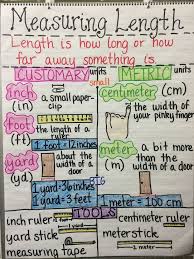 Measuring Length
Length is how long or how
far away something is.
CUSTOMARY units METRIC units
inch small centimeter
(in) a small paper-
clip (cm) the width of
your pinky finger
foot the length of a
(ft) ruler
1 foot = 12 inches
yard about the
width of a
door
(yd) BIG
meter a bit more
(m) than the width
of a door
1 yard = 36 inches
1 yard = 3 feet 1 meter = 100 cm
TOOLS
inch ruler centimeter ruler
yard stick meterstick
1 meter
measuring tape